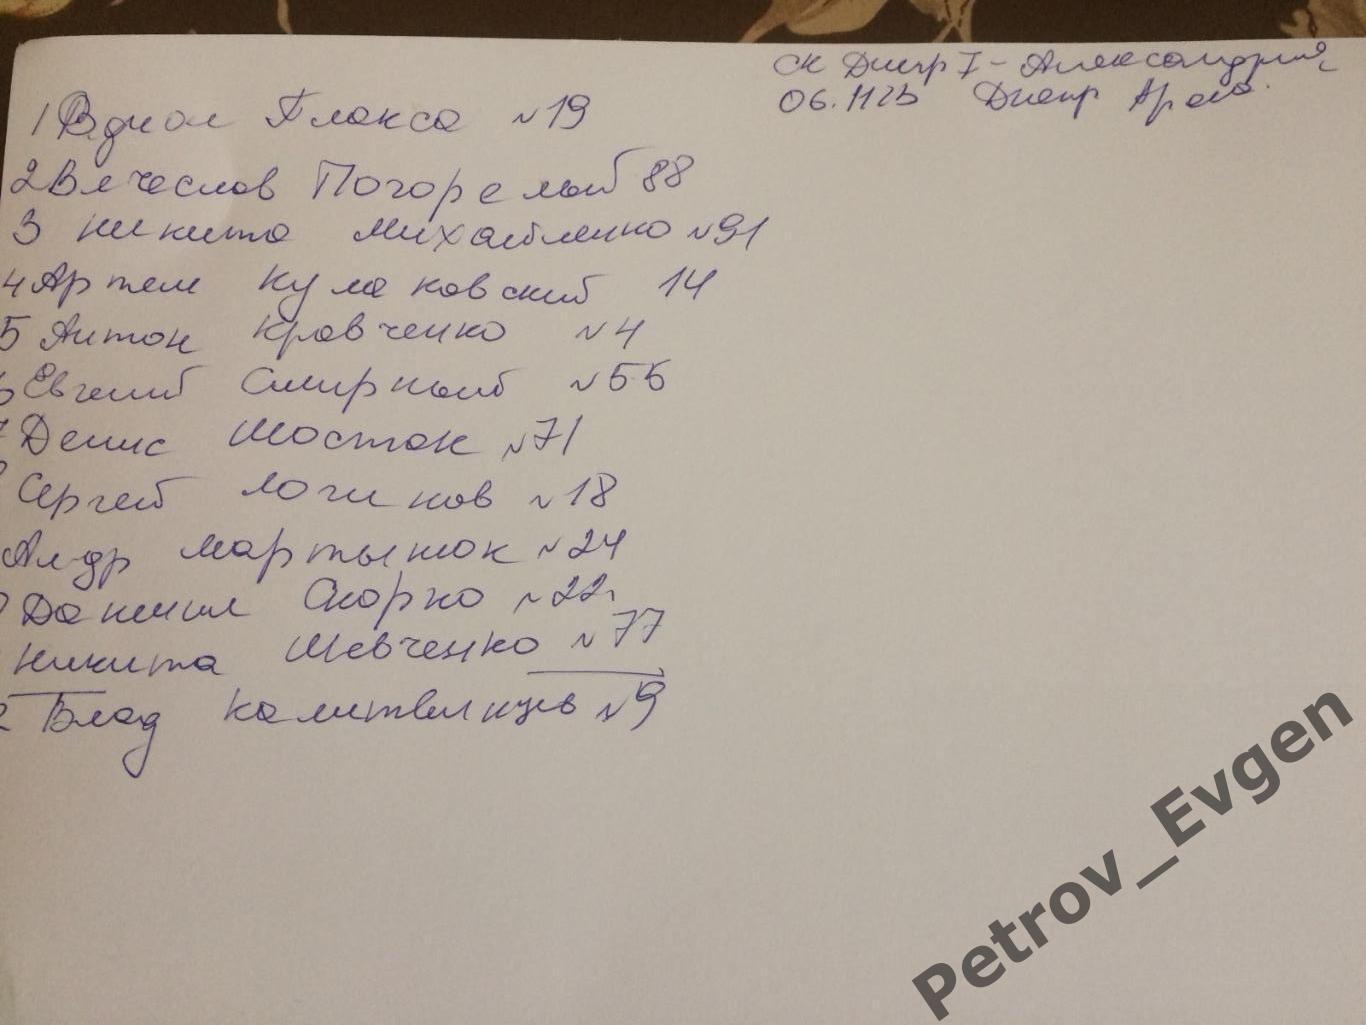 СК Днепр I - Александрия
06.11 23 Днепр Арена
1 Плакса №19
2 Вячеслав Погорелый 88
3 Никита Михайленко №91
4 Артем Кулаковский 14
5 Антон Кравченко №4
Евгений Смирный №55
Денис Шостак №71
Сергей Логинов №18
Ал-др Мартынюк №24
Даниил Скорко №22
Никита Шевченко №77
Влад Калитвинцев №9
Petrov_Evgen